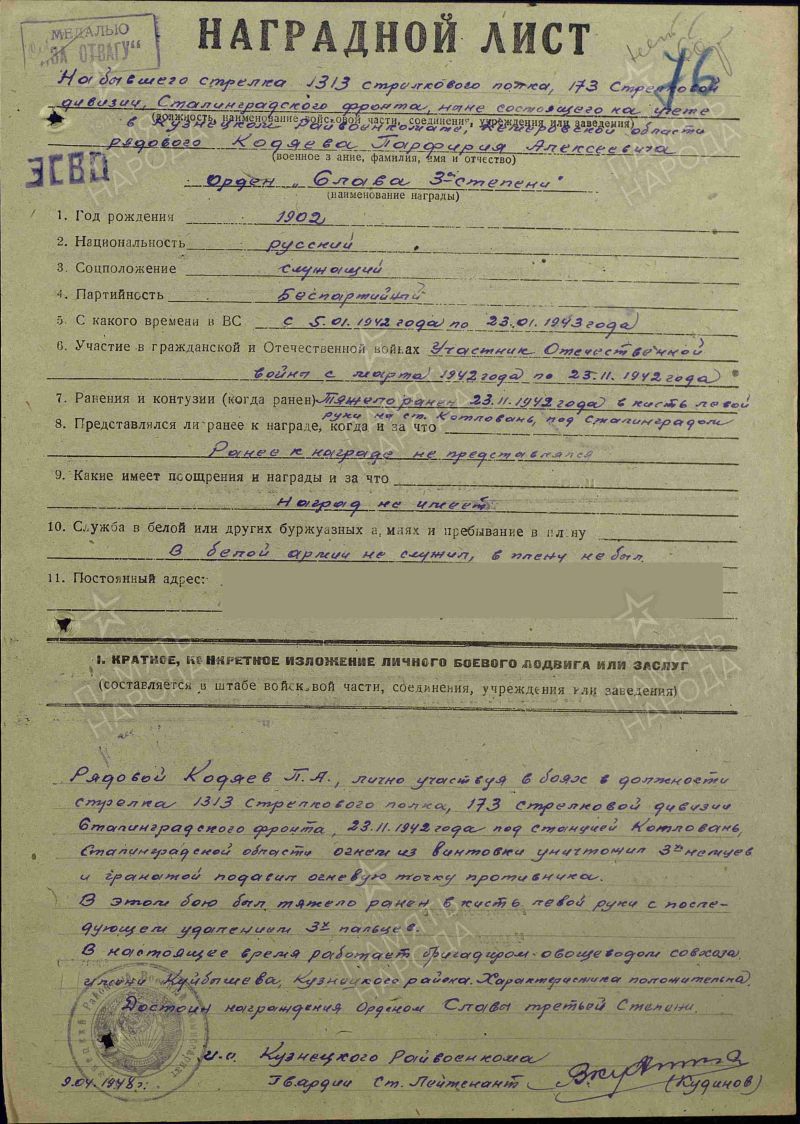 МЕДАЛЬЮ
"ЗА ОТВАГУ"
НАГРАДНОЙ ЛИСТ
76
На бывшего стрелка 1313 стрелкового полка, 173 Стрелковой
дивизии, Сталинградского фронта, ныне состоящего на учете
(должность, наименование войсковой части, соединения, учреждения или заведения)
в Кузнецком Райвоенкомате, Кемеровской области
рядового Кодяева Парфирия Алексеевича
(военное з ание, фамилия, имя и отчество)
ЗСВО
орден „Слава 3ей степени"
(наименование награды)
1. Год рождения 1902
2. Национальность русский
3. Соцположение служащий
4. Партийность Беспартийный
5. С какого времени в ВС с 5.01.1942 года по 23.01.1943 года
6. Участие в гражданской и Отечественной войнах Участник Отечественной
войны с марта 1942 года по 23.11.1942 года
7. Ранения и контузии (когда ранен) Тяжело ранен 23.11.1942 года в кисть левой
руки на ст. Котловань, под Сталинградом
8. Представлялся ли ранее к награде, когда и за что
Ранее к награде не представлялся
9. Какие имеет поощрения и награды и за что
Наград не имеет
10. Служба в белой или других буржуазных а, миях и пребывание в плену
В белой армии не служил, в плену не был
11. Постоянный адрес:
I. КРАТКОЕ, КОНКРЕТНОЕ ИЗЛОЖЕНИЕ ЛИЧНОГО БОЕВОГО ПОДВИГА ИЛИ ЗАСЛУГ
(составляется в штабе войсковой части, соединения, учреждения или заведения)
Рядовой Кодяев П.А., лично участвуя в боях в должности
стрелка 1313 стрелкового полка, 173 стрелковой дивизии
Сталинградского фронта, 23.11.1942 года под станцией Котловань,
Сталинградской области огнем из винтовки уничтожил 3х немцев
и гранатой подавил огневую точку противника.
В этом бою был тяжело ранен в кисть левой руки с после-
дующем удалением 3х пальцев.
В настоящее время работает бригадиром-овощеводом совхоза
имени Куйбышева, Кузнецкого района. Характеристика положительна.
Достоин награждения Орденом Слава третьей Степени.
и.о. Кузнецкого Райвоенкома
Гвардии Ст. Лейтенант (Кудинов)
9.04.1948 г.
ПАМЯТЬ НАРОДА